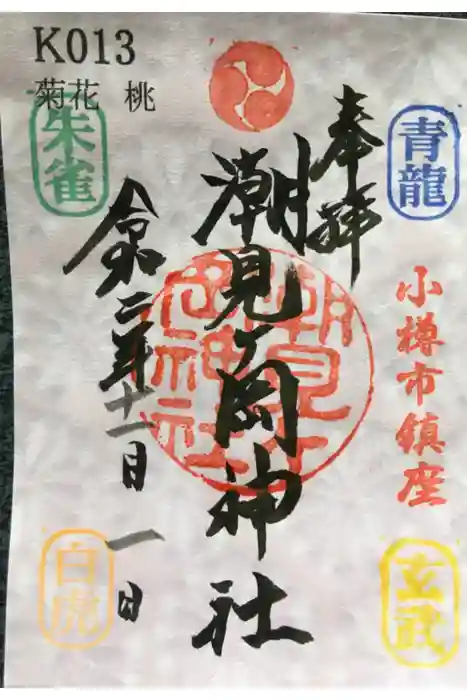 K013
菊花 桃
奉拝
青龍
朱雀
潮見ヶ岡神社
小樽市鎮座
令和二年十一日一日
白虎
玄武